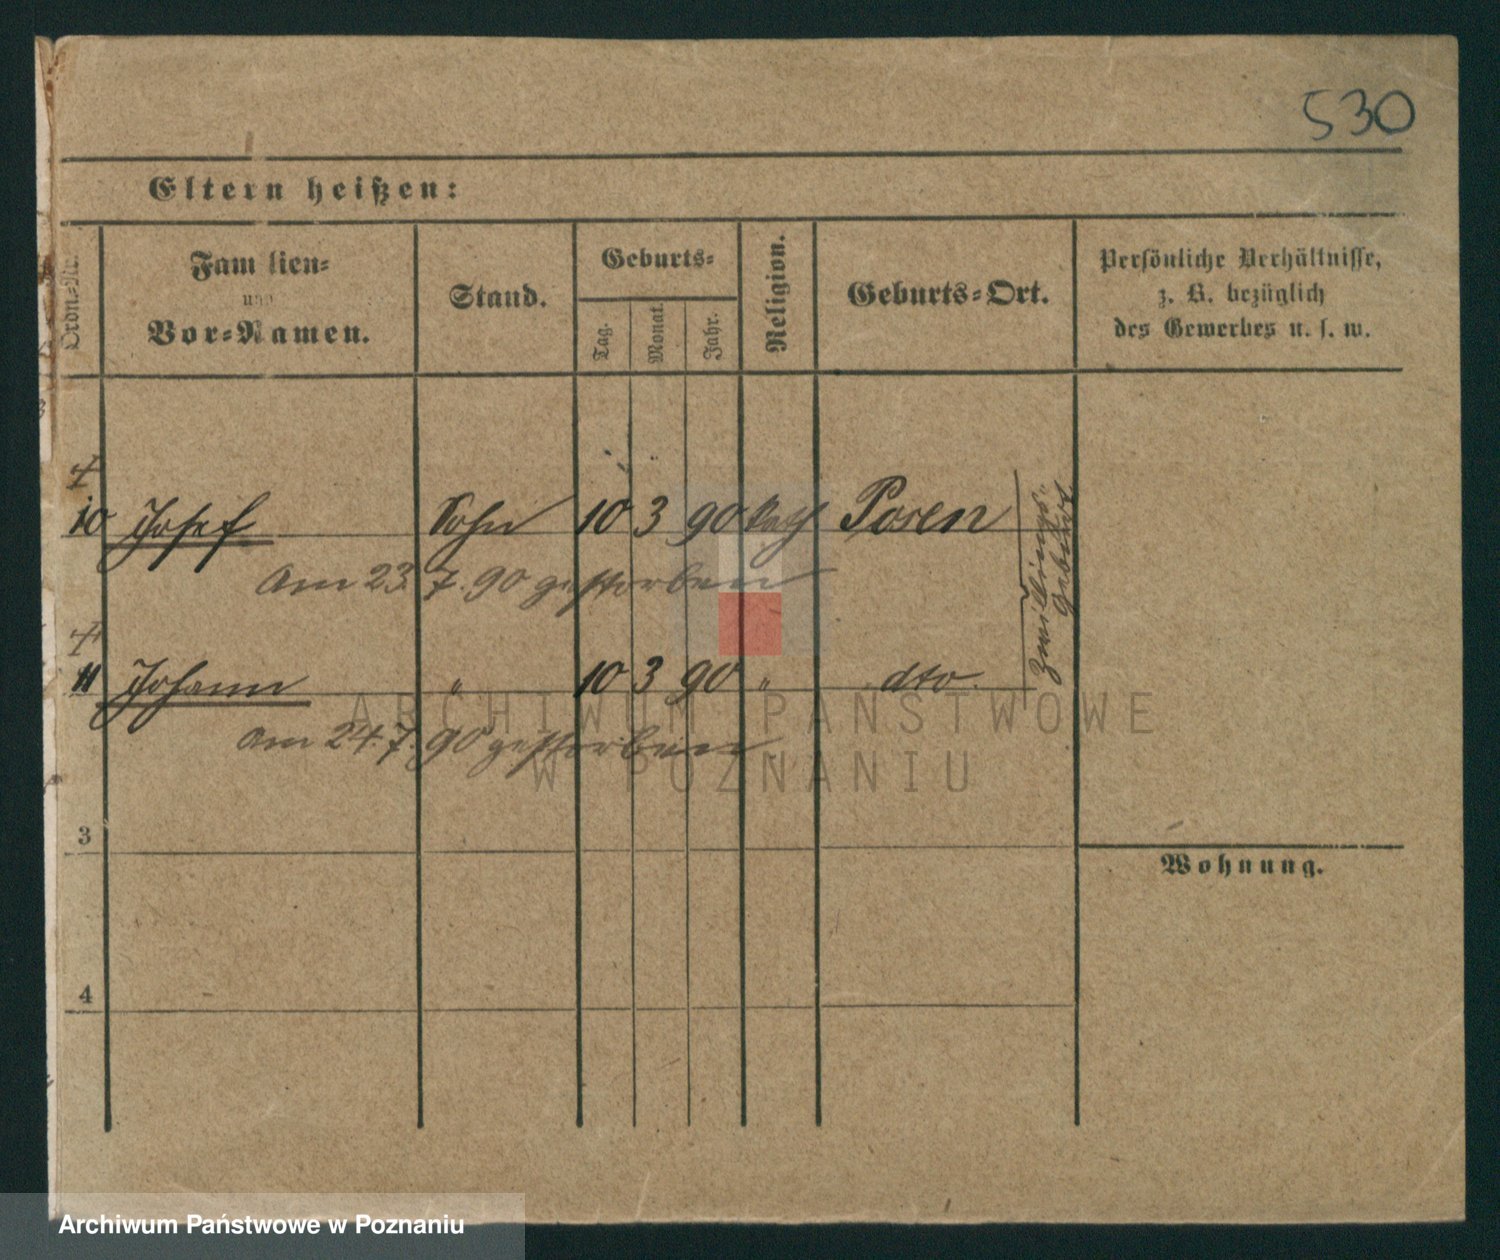 530
Eltern heißen:
Ordn.-Nr.
Familien-
und
Vor-Namen.
Stand.
Geburts-
Tag.
Monat.
Jahr.
Religion.
Geburts-Ort.
Persönliche Verhältnisse,
z. B. bezüglich
des Gewerbes u. s. w.
10 Josef Sohn 10 3 90 kath Posen
Am 23. 7. 90 gestorben
11 Johann " 10 3 90 " dto.
Am 24. 7. 90 gestorben
Zwillings-
geburt
ARCHIWUM PAŃSTWOWE
W POZNANIU
3
Wohnung.
4
Archiwum Państwowe w Poznaniu